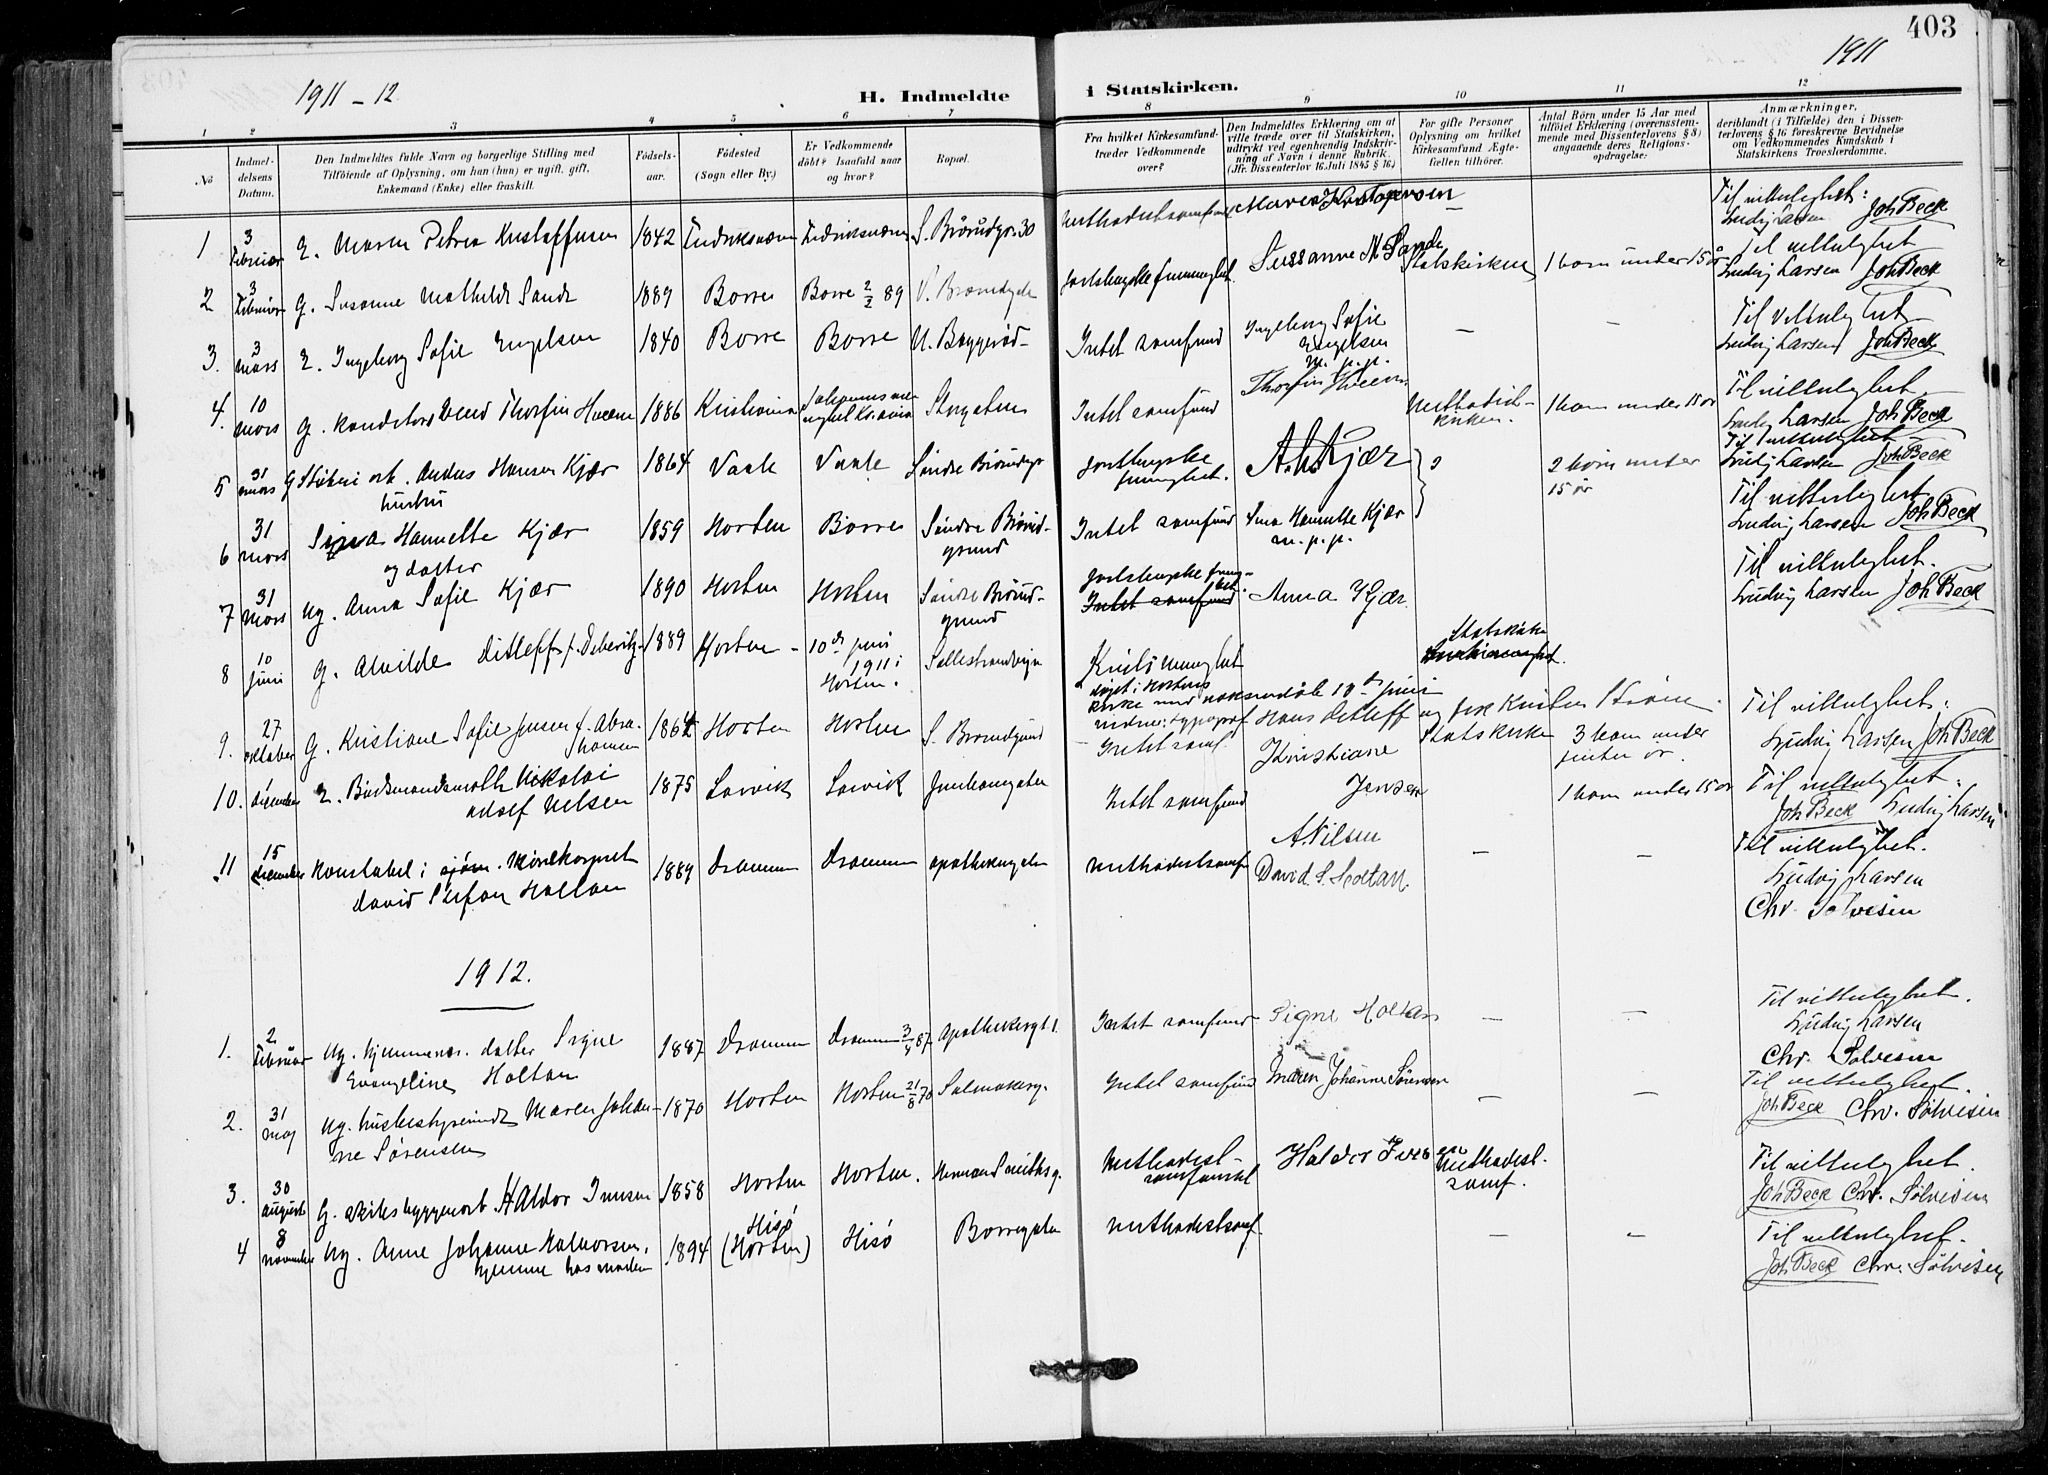 403
1911 - 12
1911
H. Indmeldte i Statskirken.
1 2 3 4 5 6 7 8 9 10 11 12
No
Indmeldelsens Datum.
Den Indmeldtes fulde Navn og borgerlige Stilling med
Tilføiende af Oplysning, om han (hun) er ugift, gift,
Enkemand (Enke) eller fraskilt.
Fødselsaar.
Fødested
(Sogn eller By.)
Er Vedkommende
döbt? Isaafald naar
og hvor?
Bopæl.
Fra hvilket Kirkesamfund
træder Vedkommende
over?
Den Indmeldtes Erklæring om at
ville træde over til Statskirken,
udtrykt ved egenhændig Indskrivning
af Navn i denne Rubrik.
(Jfr. Dissenterlov 16. Juli 1845 § 16.)
For gifte Personer
Oplysning om hvilket
Kirkesamfund Ægtefællen
tilhörer.
Antal Börn under 15 Aar med
tilföiet Erklæring (overensstemmende
med Dissenterlovens § 8)
angaaende deres Religionsopdragelse.
Anmærkninger,
deriblandt (i Tilfælde) den i Dissenterlovens
§ 16 foreskrevne Bevidnelse
om Vedkommendes Kundskab i
Statskirkens Troeslærdomme.
1 3 Februar E. Maren Petrea Kristoffersen 1842 Fredriksværn Fredriksværn S. Brårudgr. 30 Methodistsamfund Maren Kristofersen — Til vitterlighet: Ludvig Larsen Joh Beck
2 3 Februar G. Susanne Mathilde Sande 1889 Borre Borre 2/2 89 Susanne M Sande Statskirken 1 barn under 15 år Til vitterlighet Ludvig Larsen Joh Beck
3. 3 mars E. Ingeborg Sofie Engelsen 1840 Borre Borre Intet samfund Ingeborg Sofie Engelsen m. p. p. — — Til vitterlighet Ludvig Larsen Joh Beck
4. 10 mars G. Thorfin 1886 Kristiania Storgaten Intet samfund Thorfin Methodistkirken. 1 barn under 15 år Til vitterlighet Ludvig Larsen Joh Beck
5 31 mars G Anders Hansen Kjær 1864 Vaale Vaale Søndre A. H. Kjær 2 barn under 15 år Til vitterlighet Ludvig Larsen Joh Beck
6 31 mars hustru Hannette Kjær 1859 Horten Borre Søndre Brårudgrund Intet samfund Hannette Kjær m. p. p. Til vitterlighet Ludvig Larsen Joh Beck
7 31 mars og datter ug. Anna Sofie Kjær 1890 Horten Horten Søndre Brårudgrund Intet samfund Anna Kjær. Til vitterlighet. Ludvig Larsen Joh Beck
8 10 juni G. Alvilde Ditleff f. 1889 Horten - 10de juni 1911 i Horten. Statskirke
døpt i Hortens kirke 10de juni
vidner: typograf Hans Ditleff og
9. 27 oktober G. Kristiane Sofie Jensen f. Abrahamsen 1864 Horten Horten Intet samf. Kristiane Jensen Statskirken 3 barn under femten år. Til vitterlighet: Ludvig Larsen Joh Beck
10. december E. Nikolai Adolf Nilsen 1875 Larvik Larvik Intet samfund A. Nilsen 1 barn under 15 år Til vitterlighet: Joh Beck Ludvig Larsen
11 15 december Konstabel i sjøm. minekorpset David Stefan Holtan 1889 Drammen Drammen apothekergaten Methodistsamf David S. Holtan — — Til vitterlighet. Ludvig Larsen Chr. Sølvesen
1912.
1. 2 Februar ug. datter Signe Evangeline Holtan 1887 Drammen Drammen 3/4 87 Apothekergt 1. Intet samfund Signe Holtan — — Til vitterlighet. Ludvig Larsen Chr. Sølvesen
2. 31 maj ug. husbestyrerinde Maren Johanne Sørensen 1870 Horten Horten 21/8 70 Intet samfund Maren Johanne Sørensen — — Til vitterlighet. Joh Beck Chr. Sølvesen
3. 30 august G. Haldor Iversen 1858 Horten Horten. Methodistsamfundet Haldor Iversen Methodist. samf. Til vitterlighet. Joh Beck Chr. Sølvesen
4 8 november ug. Anne Johanne Halvorsen, hjemme hos moderen 1894 Hisö (Horten) Hisö Borregaten Methodistsamf — — Til vitterlighet. Joh Beck Chr. Sølvesen